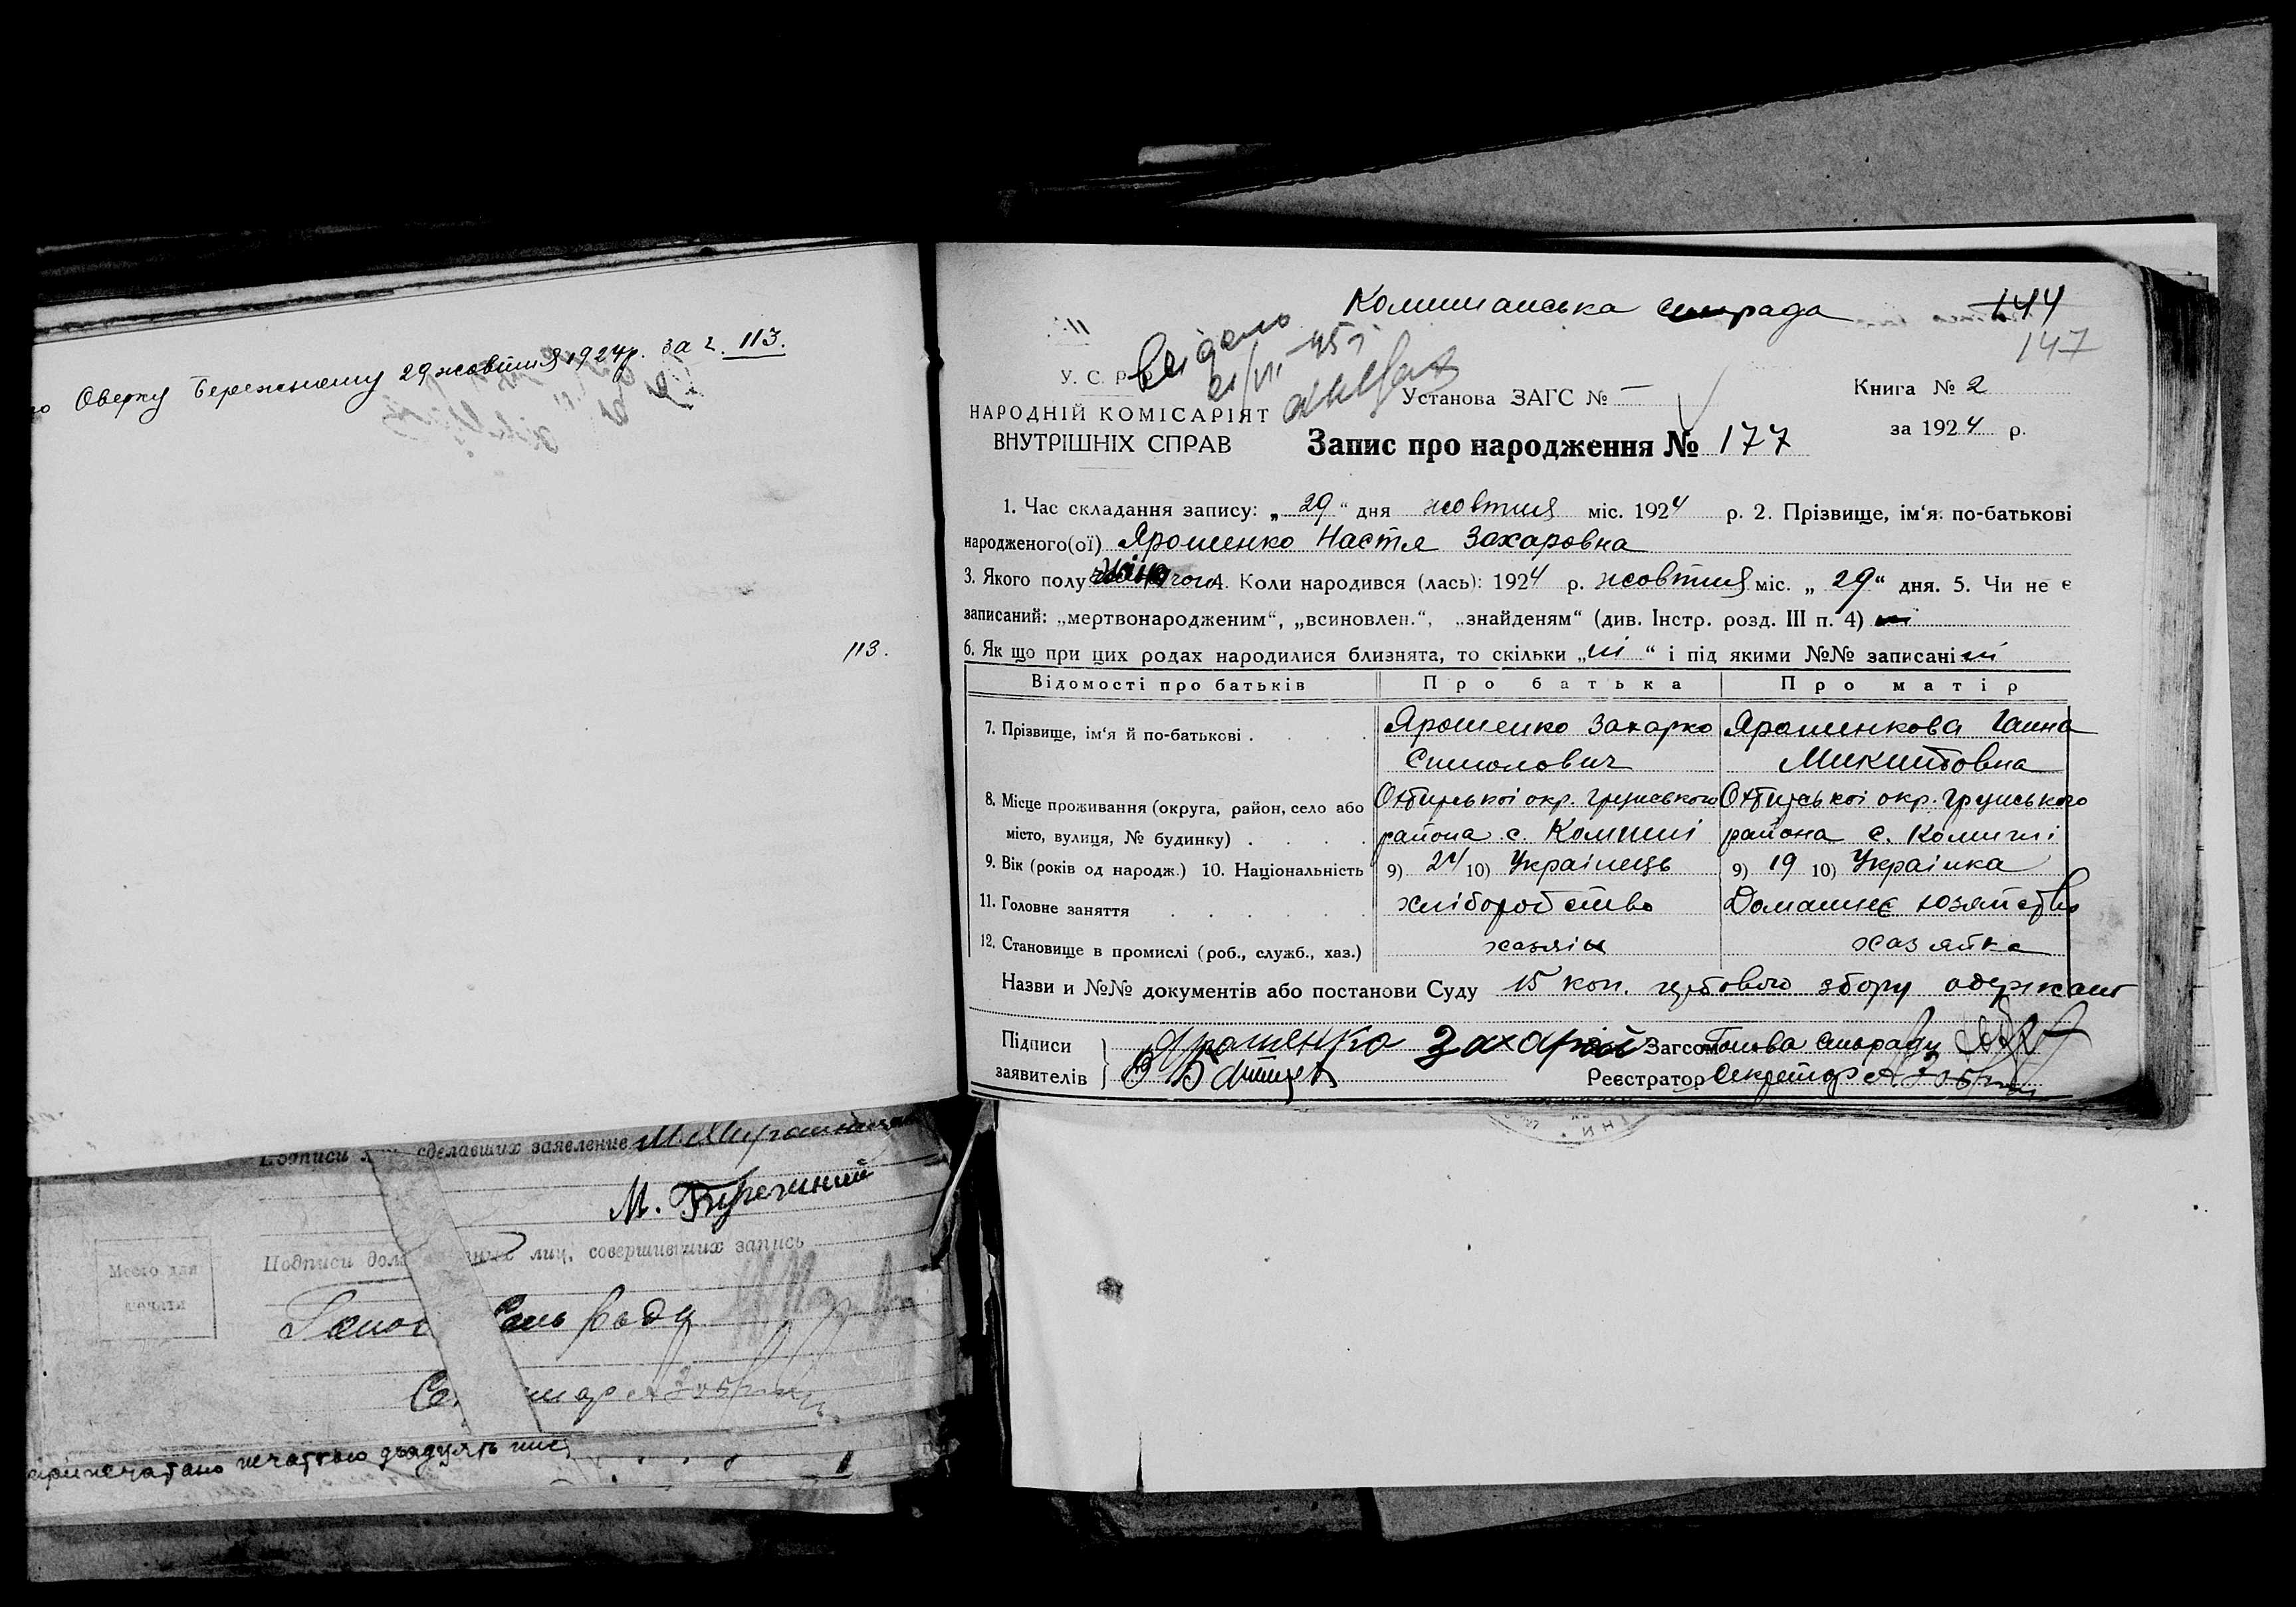 Оверку Бережному 29 жовтня 1924 р. за г. 113.
113.
Подписи сделавших заявление
М. Бережний
Подписи лиц, совершивших запись
Место для
печати
Сель Рады
припечатано печаттю двадцять
1
Комишанська сільрада 144
147
Видано
21/VI-45 г
У. С. Р. Р.
Установа ЗАГС № —
Книга № 2
НАРОДНІЙ КОМІСАРІЯТ
ВНУТРІШНІХ СПРАВ
Запис про народження № 177
за 1924 р.
1. Час складання запису: „ 29 “ дня жовтня міс. 1924 р. 2. Прізвище, ім‘я. по-батькові
народженого(ої) Ярошенко Настя Захаровна
3. Якого полу жіночого 4. Коли народився (лась): 1924 р. жовтня міс. „ 29 “ дня. 5. Чи не є
записаний: „мертвонародженим“, „всиновлен.“, „знайденям“ (див. Інстр. розд. III п. 4) ні
6. Як що при цих родах народилися близнята, то скільки „ ні “ і під якими №№ записані ні
Відомості про батьків Про батька Про матір
7. Прізвище, ім‘я й по-батькові . . . . Ярошенко Захарко Ярошенкова Ганна
Симонович Микитовна
8. Місце проживання (округа, район, село або Охтирської окр. Грунського Охтирської окр. Грунського
місто, вулиця, № будинку) . . . . района с. Комиші района с. Комиші
9. Вік (років од народж.) 10. Національність 9) 24 10) Українець 9) 19 10) Українка
11. Головне заняття . . . . . . хліборобство Домашнє хозяйство
12. Становище в промислі (роб., служб., хаз.) хазяін хазяйка
Назви и №№ документів або постанови Суду 15 коп. гербового збору одержано
Підписи Ярошенко Захарій Загсом Голова сільради
заявителів Реєстратор Секретар